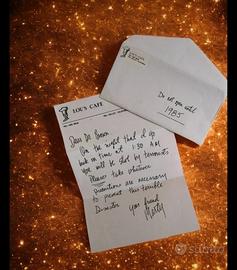 LOU'S CAFE
Dear Dr Brown
On the night that I go
back in time at 1:30 AM
you will be shot by terrorists
Please take whatever
precautions are necessary
to prevent this terrible
Disaster
your friend
Marty
Do not open until
1985
subito